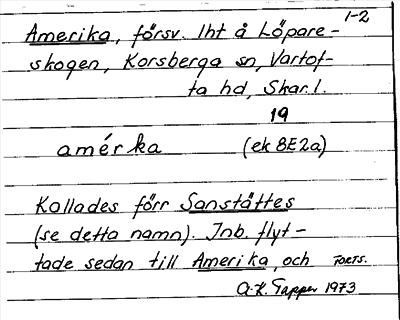 1-2
Amerika, försv. lht å Löpare-
skogen, Korsberga sn, Vartof-
ta hd, Skar. l.
19
amérka (ek 8E2a)
Kallades förr Sanstättes
(se detta namn). Inb. flyt-
tade sedan till Amerika, och FORTS.
A-K. Tapper 1973